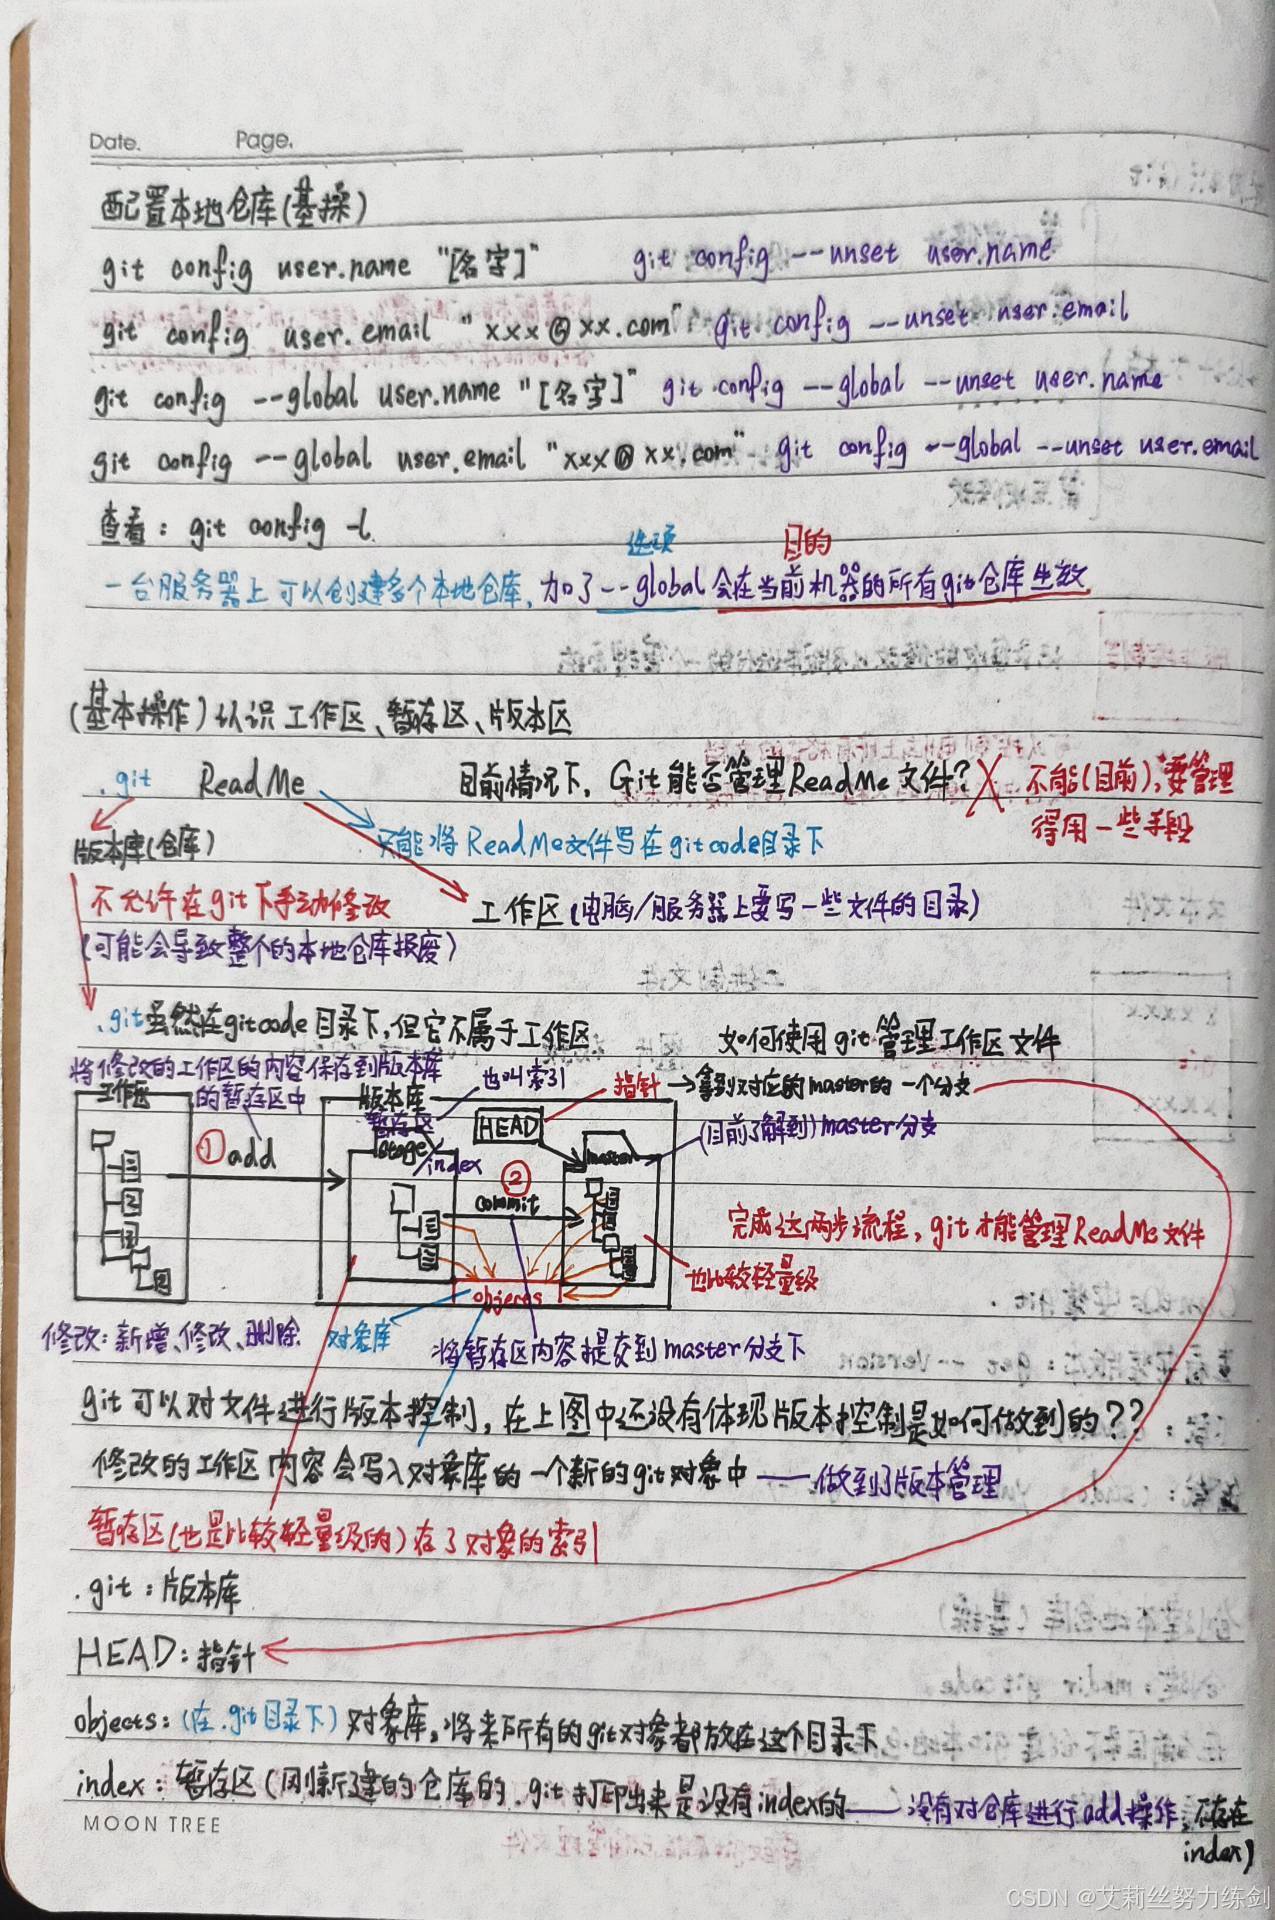 Date. Page.
配置本地仓库(基操)
git config user.name "[名字]" git config --unset user.name
git config user.email "xxx@xx.com" git config --unset user.email
git config --global user.name "[名字]" git config --global --unset user.name
git config --global user.email "xxx@xx.com" git config --global --unset user.email
查看: git config -l
选项 目的
一台服务器上可以创建多个本地仓库,加了--global会在当前机器的所有git仓库生效
(基本操作)认识工作区、暂存区、版本区
.git ReadMe 目前情况下,Git能否管理ReadMe文件? 不能(目前),要管理
得用一些手段
版本库(仓库) 只能将ReadMe文件写在gitcode目录下
不允许在git下手动修改 工作区(电脑/服务器上要写一些文件的目录)
(可能会导致整个的本地仓库报废)
.git虽然在gitcode目录下,但它不属于工作区 如何使用git管理工作区文件
将修改的工作区的内容保存到版本库
的暂存区中
也叫索引 指针→拿到对应的master的一个分支
工作区 版本库
暂存区 HEAD (目前了解到)master分支
stage/index master
① add ② commit
完成这两步流程,git才能管理ReadMe文件
也比较轻量级
objects
修改:新增、修改、删除 对象库 将暂存区内容提交到master分支下
git可以对文件进行版本控制,在上图中还没有体现版本控制是如何做到的??
修改的工作区内容会写入对象库的一个新的git对象中——做到了版本管理
暂存区(也是比较轻量级的)存了对象的索引
.git:版本库
HEAD:指针
objects:(在.git目录下)对象库,将来所有的git对象都放在这个目录下
index:暂存区(刚新建的仓库的.git打印出来是没有index的——没有对仓库进行add操作,不存在
index)
MOON TREE
CSDN @艾莉丝努力练剑